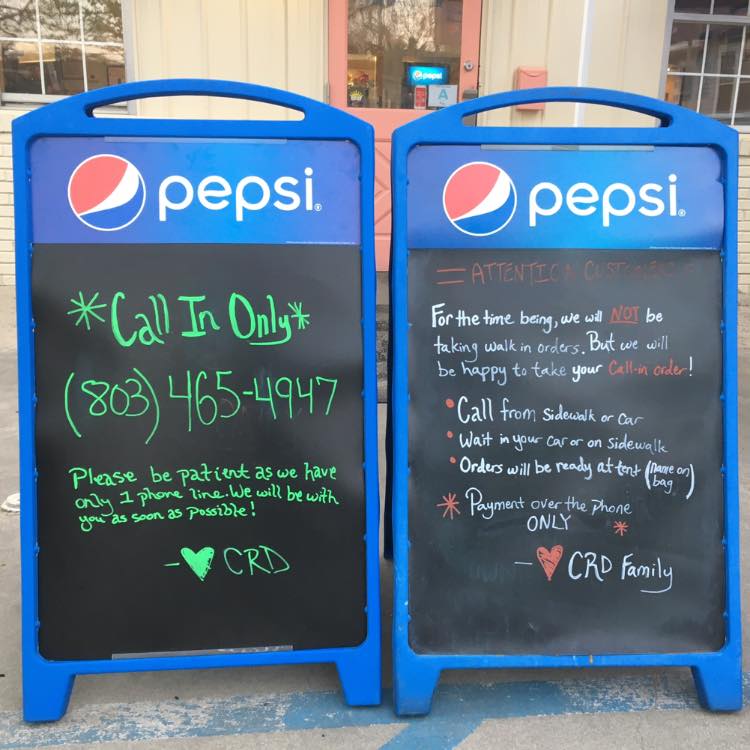 pepsi
A
pepsi.
*Call In Only*
(803) 465-4947
Please be patient as we have
only 1 phone line. We will be with
you as soon as possible!
-♥ CRD
pepsi.
= ATTENTION CUSTOMERS =
For the time being, we will NOT be
taking walk in orders. But we will
be happy to take your Call-in order!
• Call from sidewalk or car
• Wait in your car or on sidewalk
• Orders will be ready at tent (name on bag)
* Payment over the phone
ONLY *
-♥ CRD Family